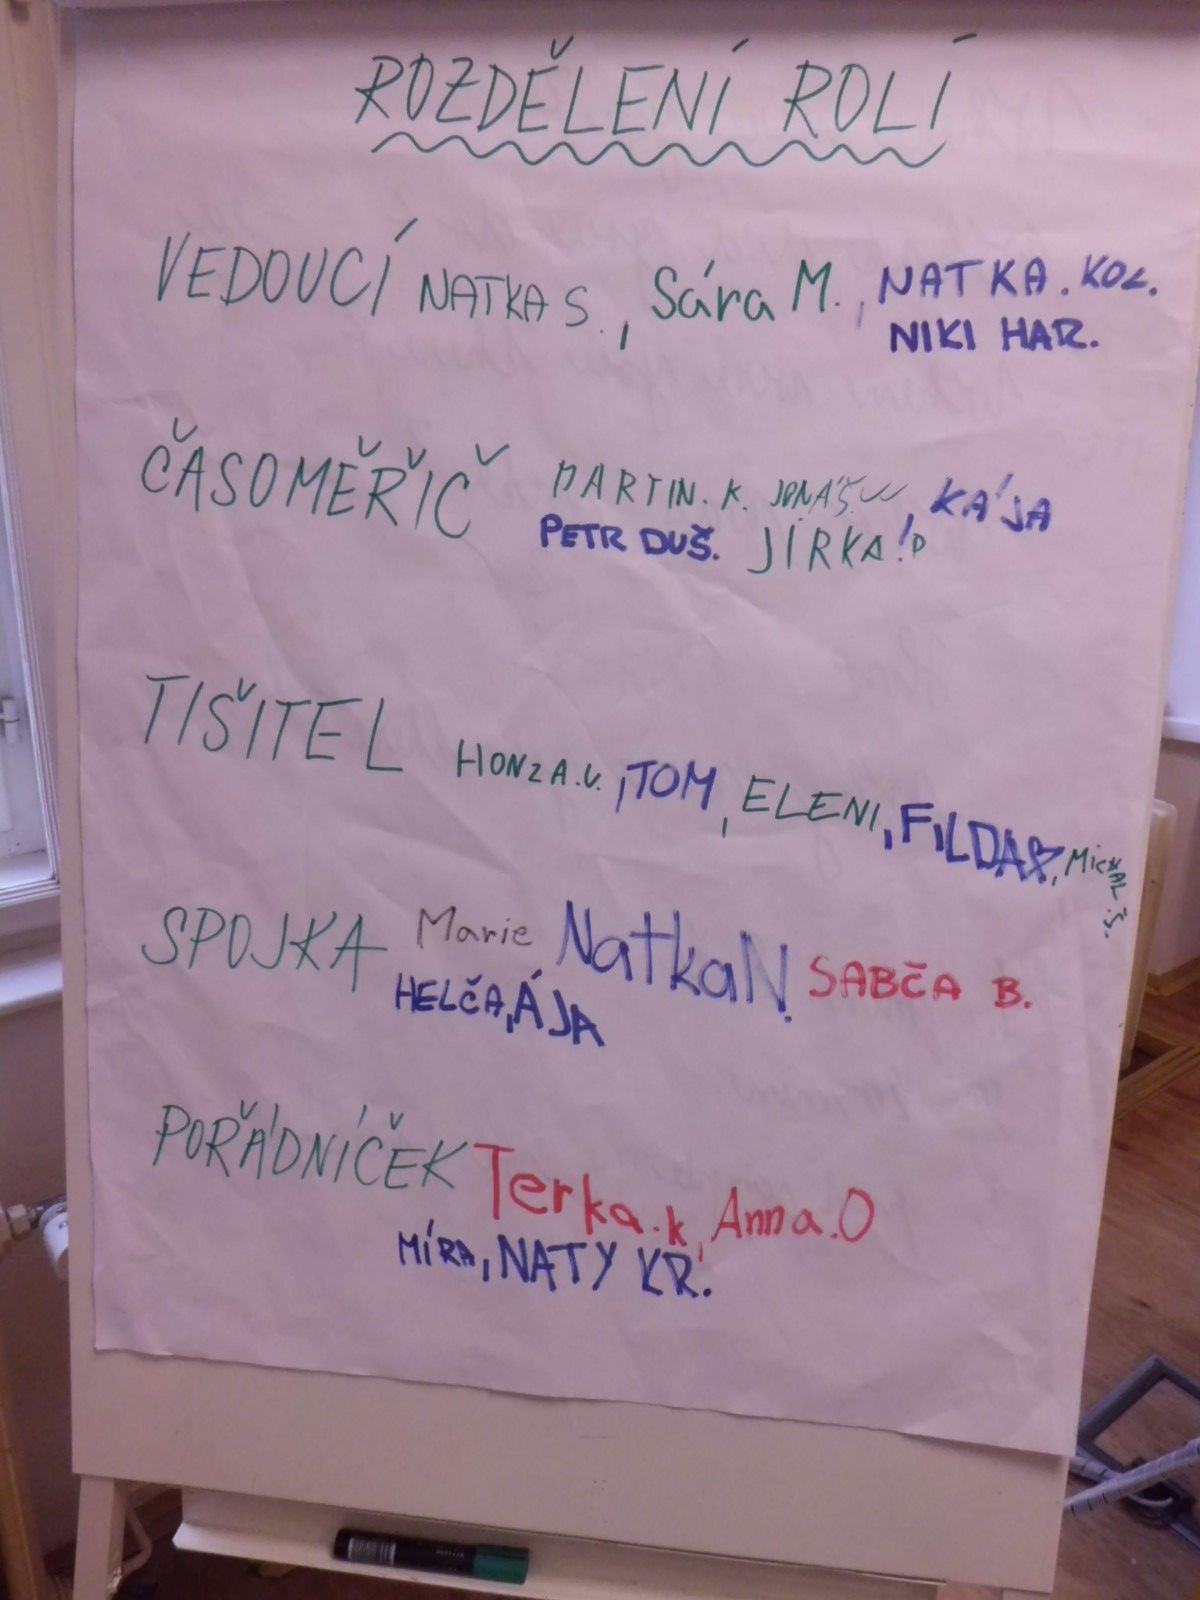 ROZDĚLENÍ ROLÍ
VEDOUCÍ NATKA S., Sára M., NATKA. KOL.
NIKI HAR.
ČASOMĚŘIČ MARTIN. K. JONÁŠ, KÁJA
PETR DUŠ. JIRKA!P
TIŠITEL HONZA.V., TOM, ELENI, FILDAS, MICHAL Š.
SPOJKA Marie NatkaN. SABČA B.
HELČA, ÁJA
POŘÁDNÍČEK Terka.k, Anna.O
MÍRA, NATY KR.